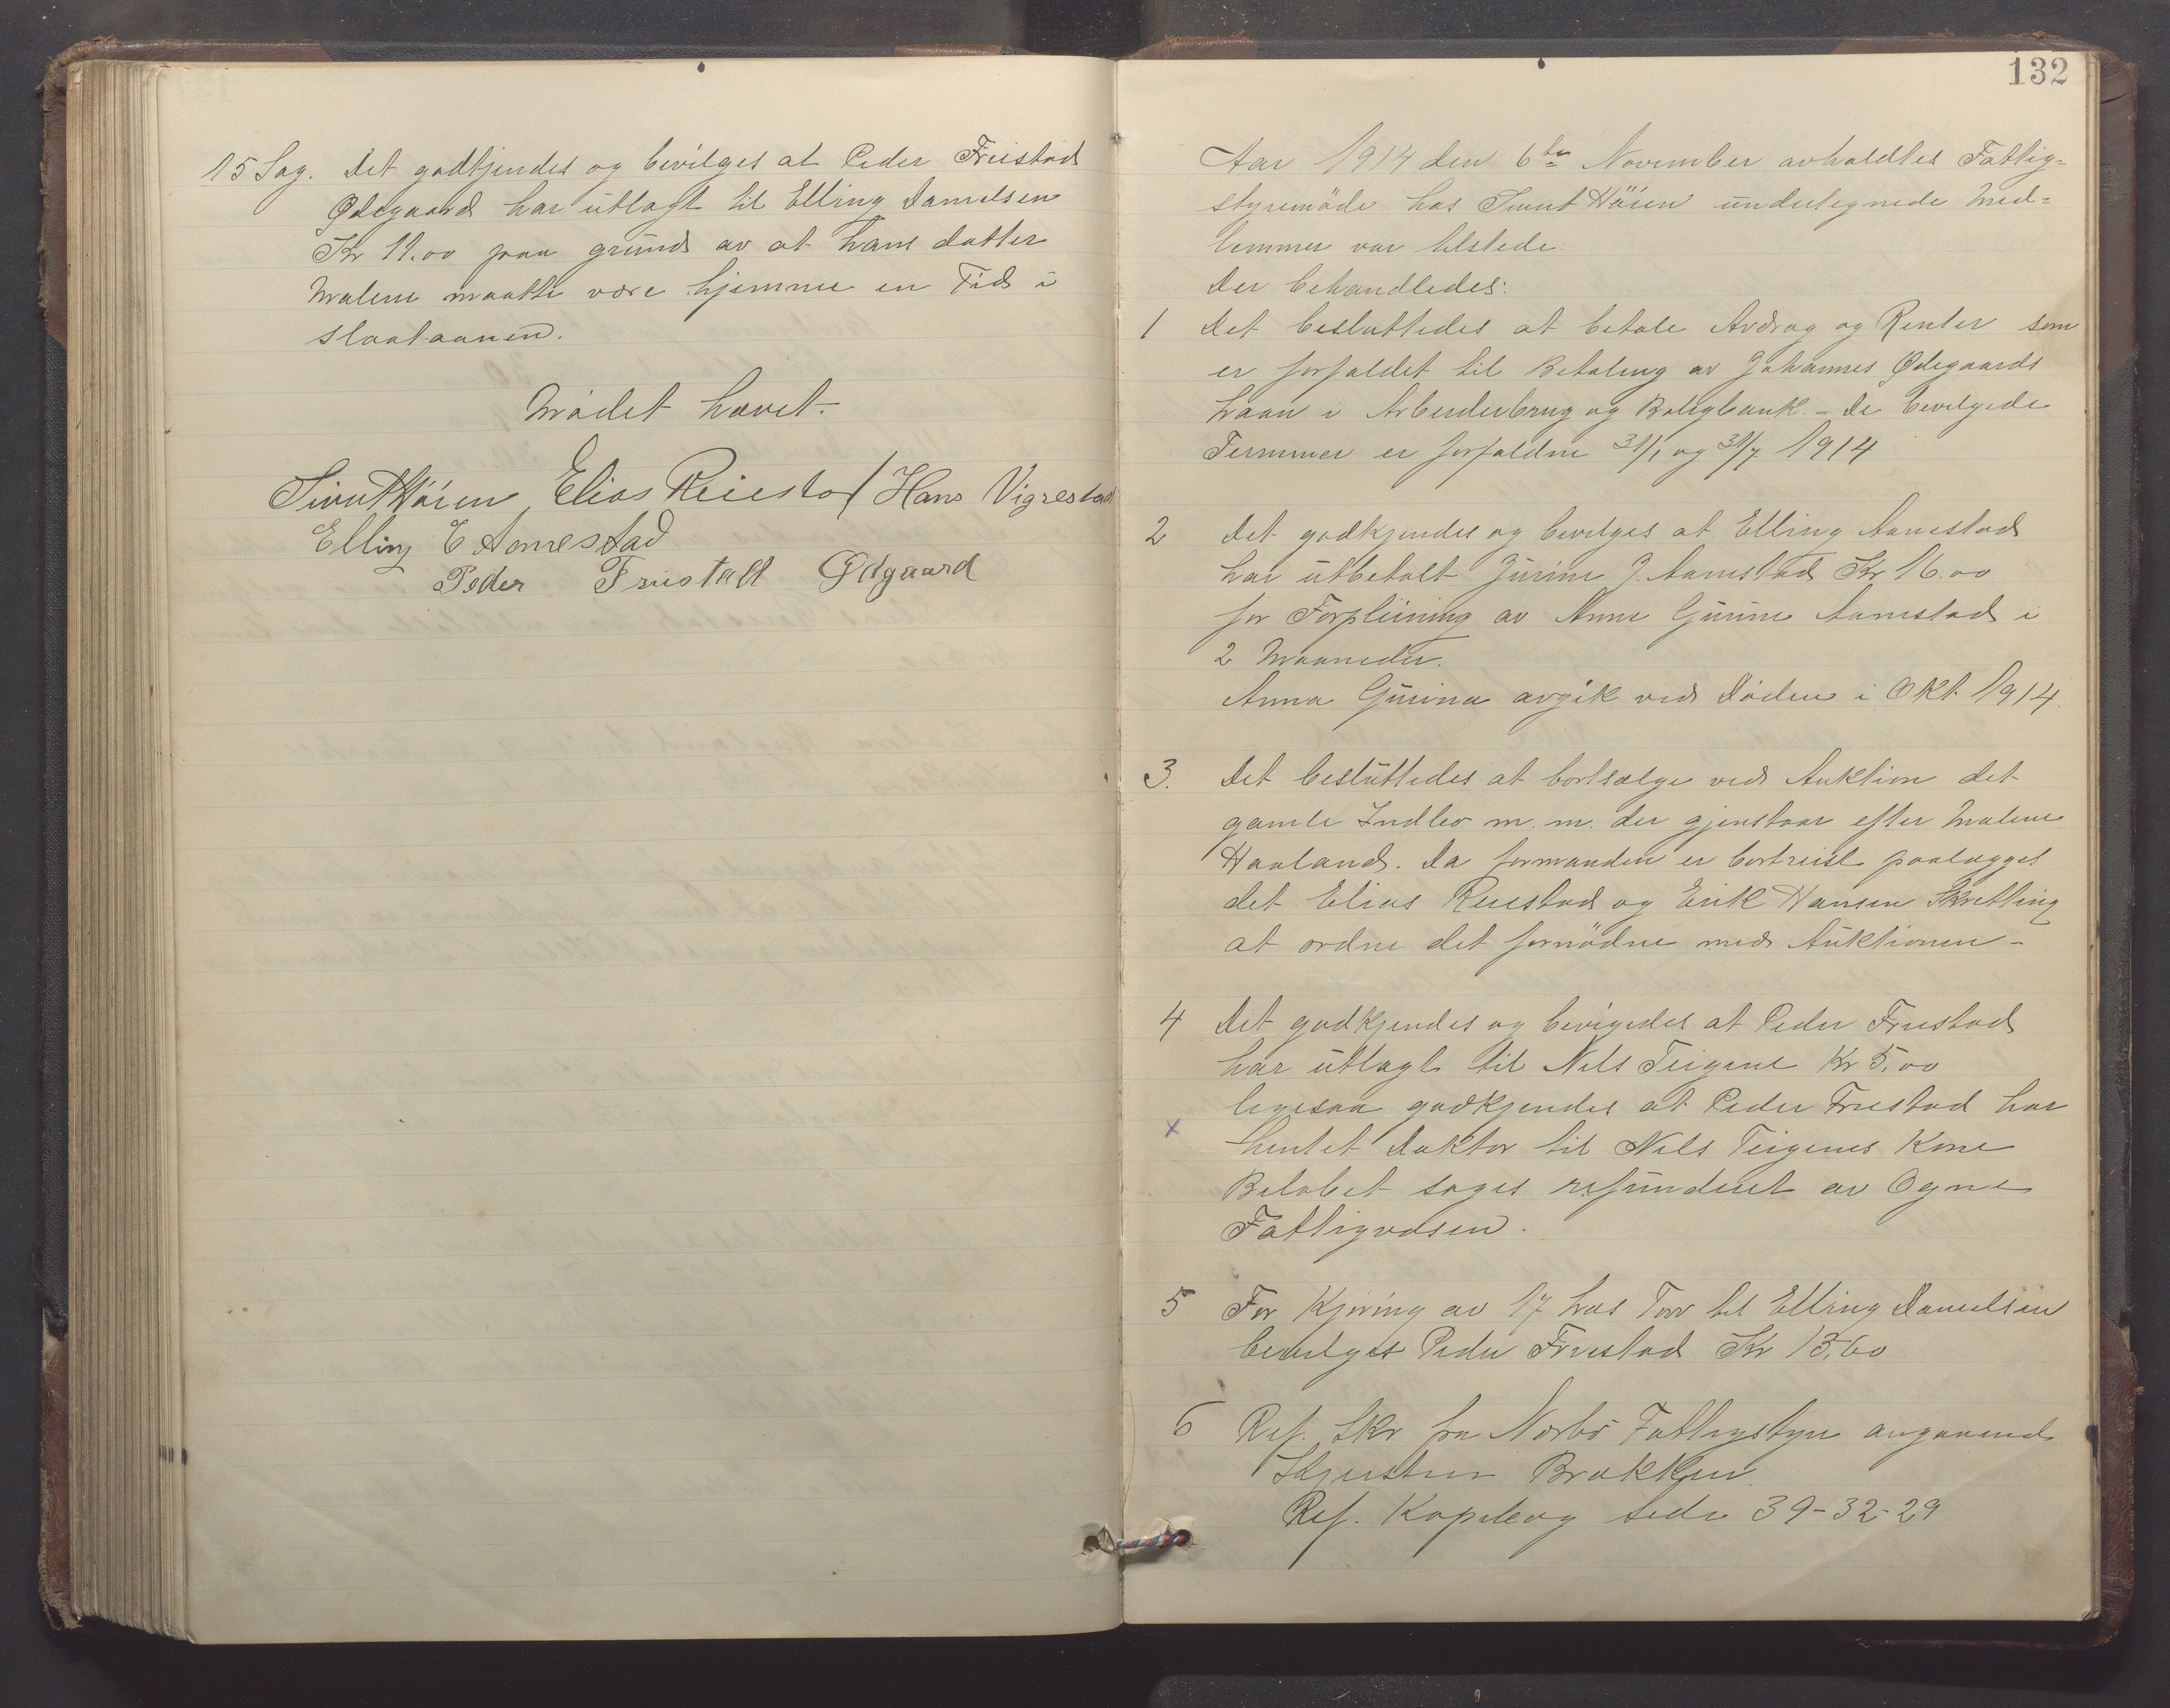 15 Sag. Det godkjendes og bevilges at Peder Friestad
Ødegaard har utlagt til Elling Danielsen
Kr 11.00 paa grund av at hans datter
Malene maatte være hjemme en Tid i
slaataanen.
Mødet hævet.
Sivert Höien Elias Reiestad Hans Vigrestad
Elling E Aanestad
Peder Friestad Ødgaard
132
Aar 1914 den 6te November avholdtes Fattig-
styremöde hos Sivert Höien undertegnede Med-
lemmer var tilstede.
Der behandledes:
1 Det besluttedes at betale Avdrag og Renter som
er forfaldet til Betaling av Johannes Ødegaards
Laan i Arbeiderbrug og Boligbank. - De bevilgede
Terminer er forfaldne 31/1 og 31/7 1914
2 Det godkjendes og bevilges at Elling Aanestad
har utbetalt Jurine J. Aanestad Kr 16.00
for Forpleining av Anne Gurine Aanestad i
2 Maaneder.
Anna Gurina avgik ved Døden i Okt 1914.
3. Det besluttedes at bortsælge ved Auktion det
gamle Indbo m. m. der gjenstaar efter Malene
Haaland. Da formanden er bortreist paalægges
det Elias Reiestad og Erik Hansen Skretting
at ordne det fornödne med Auktionen -
4 Det godkjendes og bevigedes at Peder Friestad
har utlagt til Nils Teigene Kr 5,00
ligesaa godkjendes at Peder Friestad har
x hentet Doktor til Nils Teigenes Kone
Beløbet søges refunderet av Ogne
Fattigvæsen.
5 For Kjøring av 17 læs Torv til Elling Danielsen
bevilges Peder Friestad Kr 13,60
6 Ref. Skr fra Nærbø Fattigstyre angaaende
Brækken
Ref. Kopibog side 39-32-29